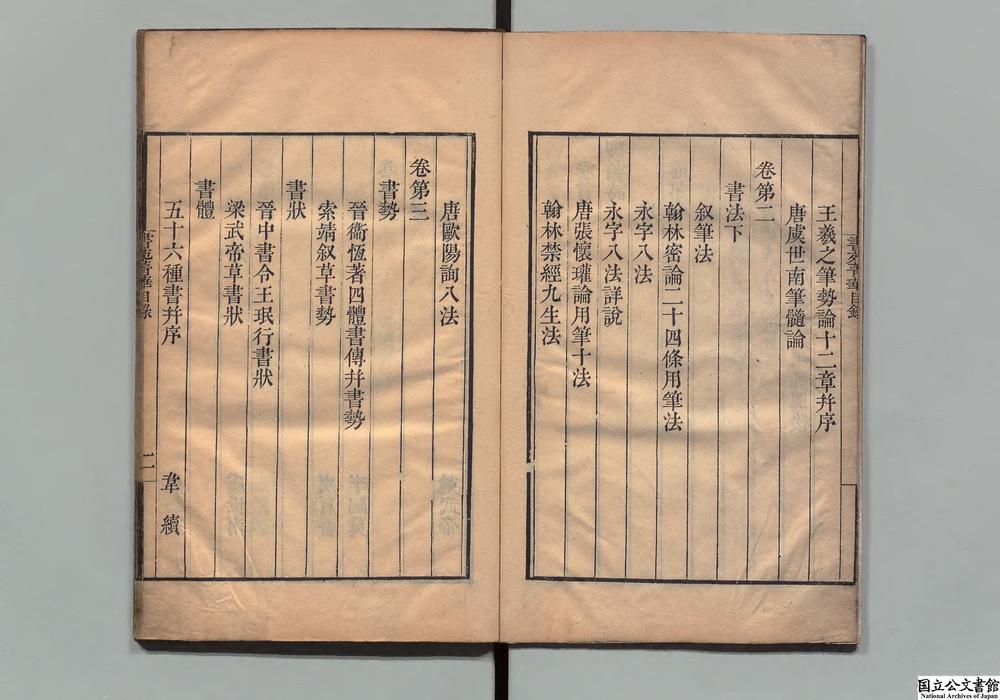 王羲之筆勢論十二章幷序
唐虞世南筆髓論
卷第二
書法下
叙筆法
翰林密論二十四條用筆法
永字八法
永字八法詳說
唐張懷瓘論用筆十法
翰林禁經九生法
唐歐陽詢八法
卷第三
書勢
晉衞恆著四體書傳幷書勢
索靖叙草書勢
書狀
晉中書令王珉行書狀
梁武帝草書狀
書體
五十六種書幷序 韋續
二
国立公文書館
National Archives of Japan